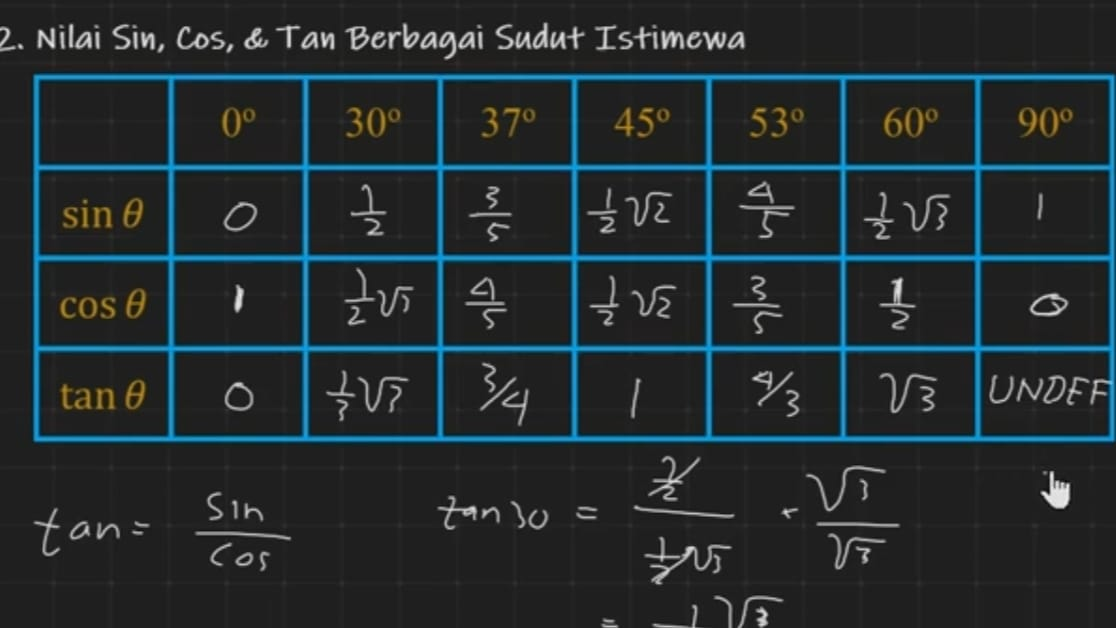 2. Nilai Sin, Cos, & Tan Berbagai Sudut Istimewa
0° 30° 37° 45° 53° 60° 90°
sin θ 0 1/2 3/5 1/2 √2 4/5 1/2 √3 1
cos θ 1 1/2 √3 4/5 1/2 √2 3/5 1/2 0
tan θ 0 1/3 √3 3/4 1 4/3 √3 UNDEF
tan = sin/cos
tan 30 = (1/2)/(1/2 √3) · √3/√3
= 1 √3